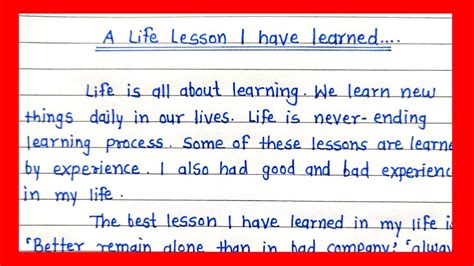 A Life Lesson I have learned....
Life is all about learning. We learn new
things daily in our lives. Life is never-ending
learning process. Some of these lessons are learne
by experience. I also had good and bad experienc
in my life.
The best lesson I have learned in my life i
"Better remain alone than in bad company", "alway